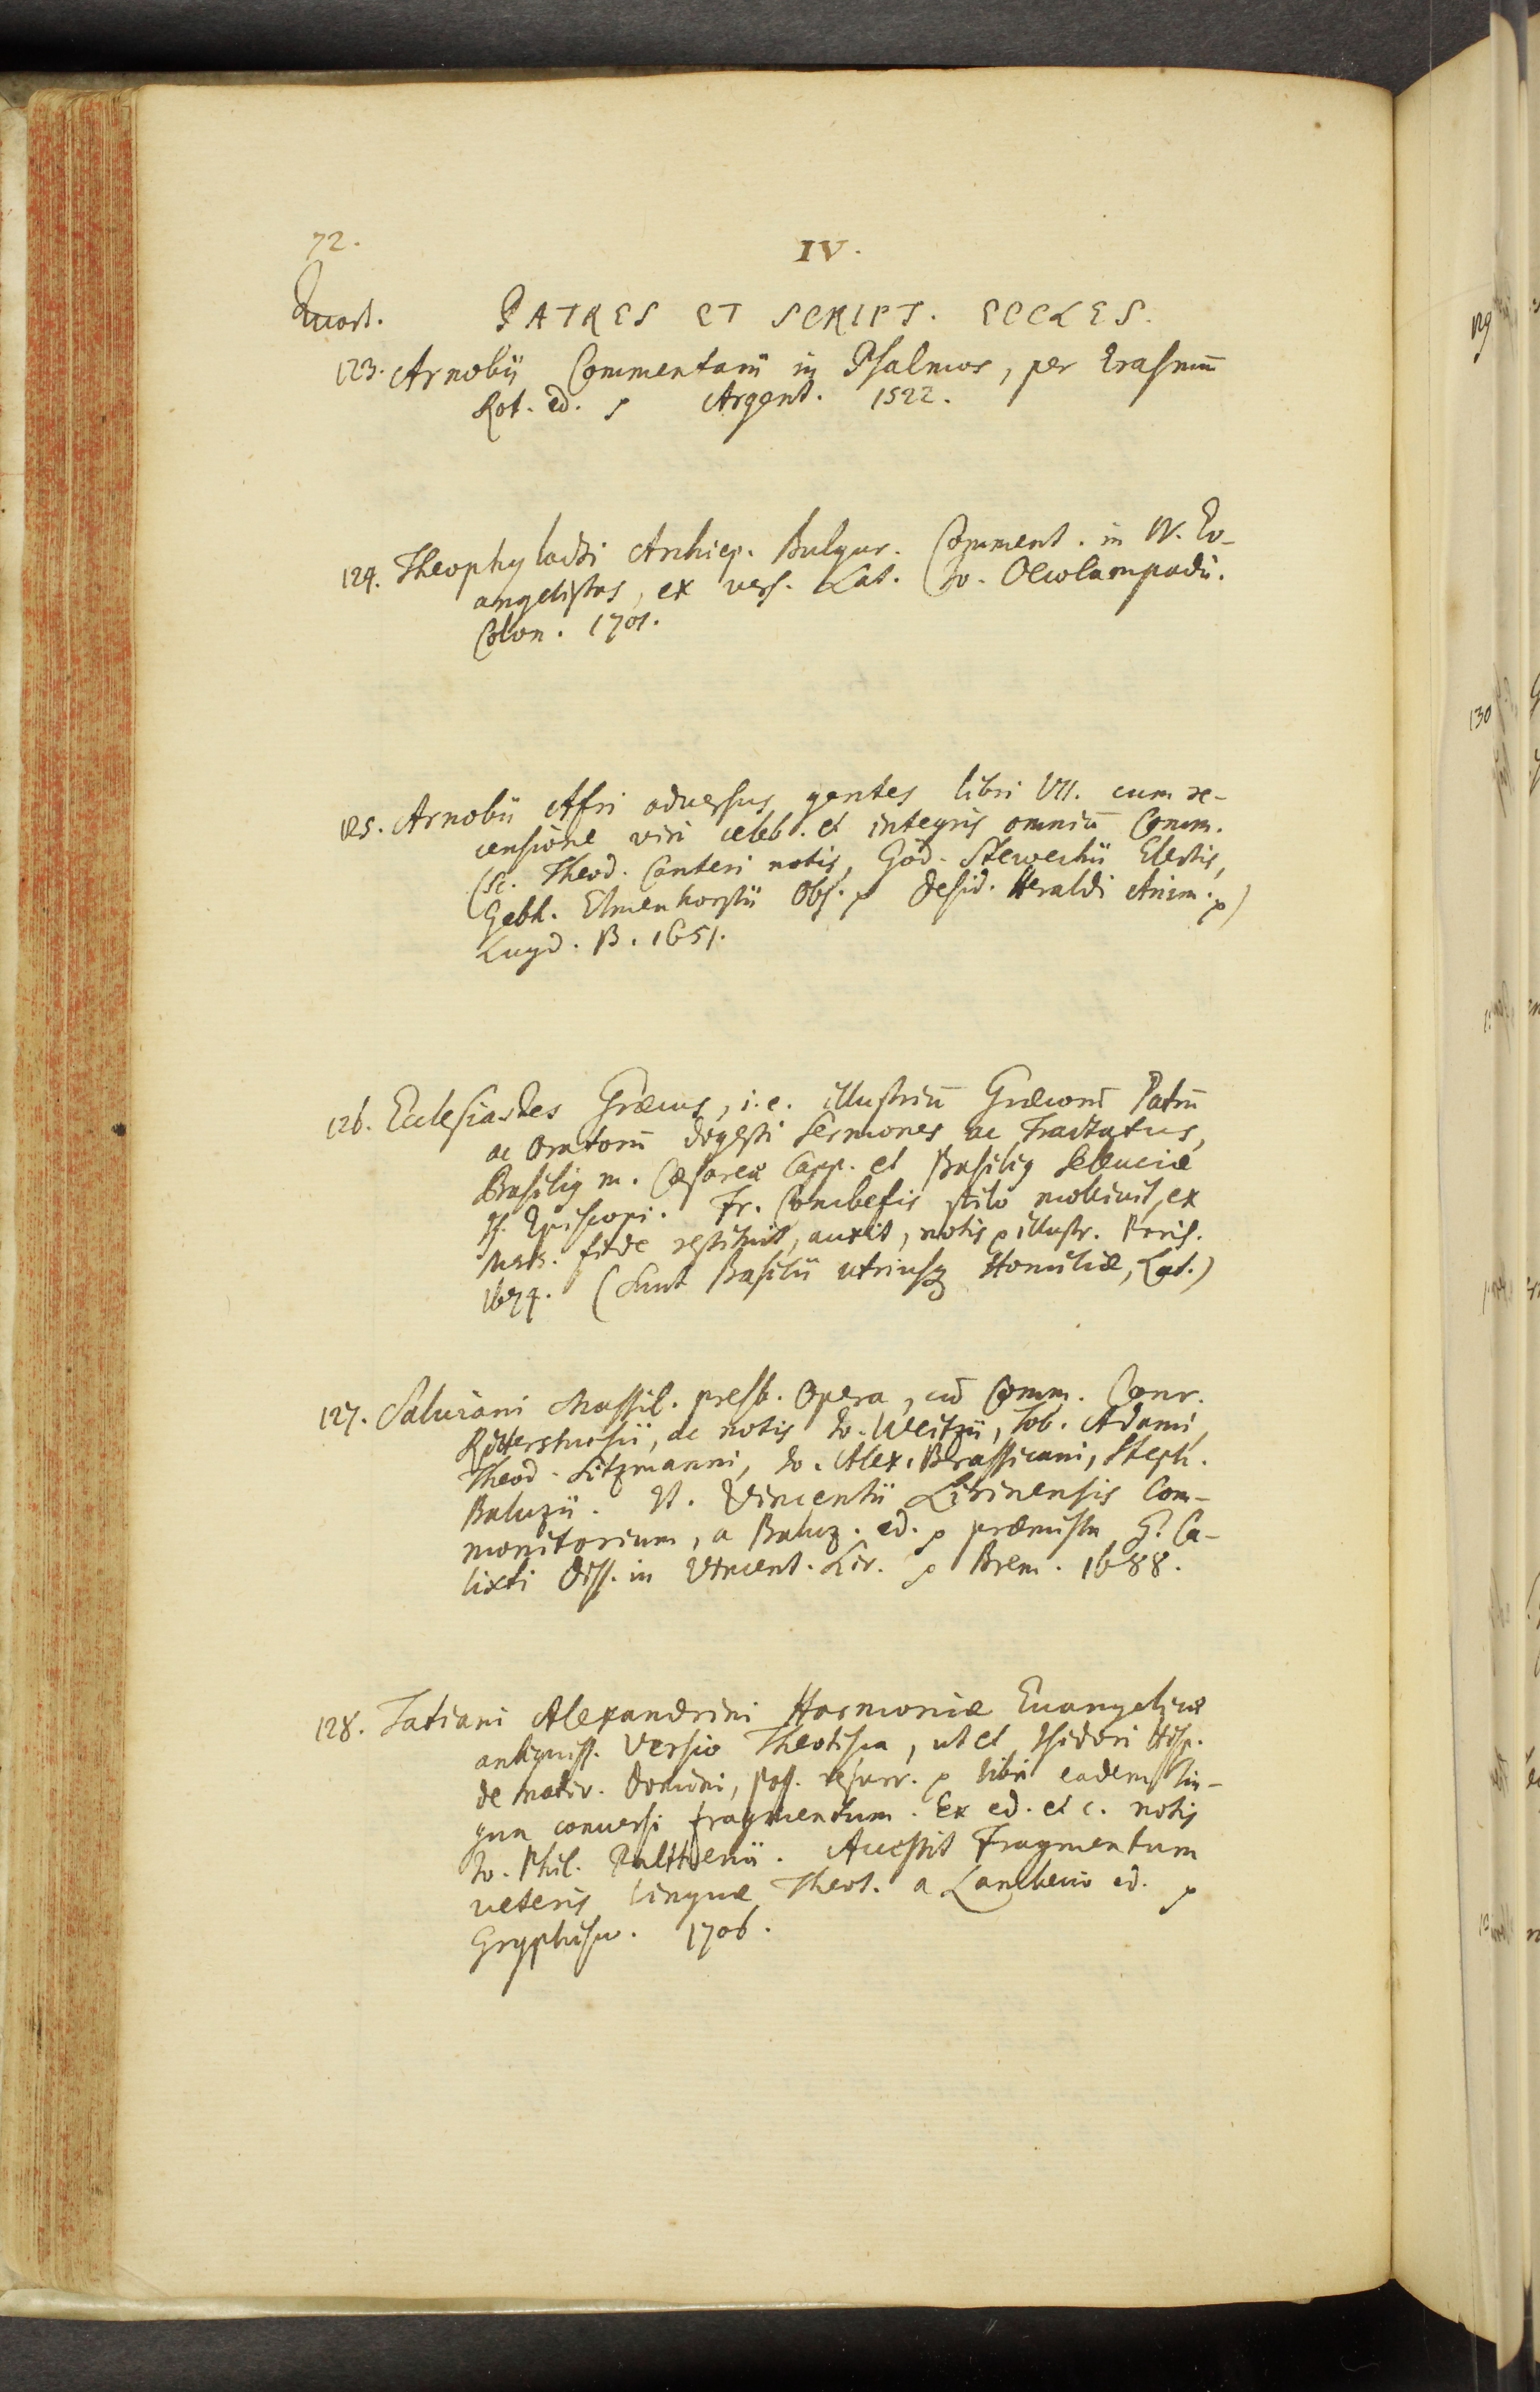 72.
IV.
Quart.
PATRES ET SCRIPT. ECCLES.
123. Arnobii Commentarii in Psalmos, per Erasmū
Rot. ed. Argent. 1522.
124. Theophylacti Archiep. Bulgar. Comment. in IV. Ev-
angelistas, ex vers. Lat. Jo. Oecolampadii.
Colon. 1701.
125. Arnobii Afri adversus gentes libri VII. cum re-
censione viri celeb. et integris omniū Comm.
(Sc. Theod. Canteri notis, God. Stewechii Electis,
Gebh. Elmenhorstii Obs. Desid. Heraldi Anim.)
Lugd. B. 1651.
126. Ecclesiastes Græcus, i.e. illustriū Græcorū Patrū
ac Oratorū digesti Sermones ac Tractatus,
Basilig m. Cæsareæ Capp. et Basilig Seleuciæ
Is. Episcopi. Fr. Combefis stilo molivit, ex
Msts. fide restituit, auxit, notis illustr. Paris.
1674. (Sunt Basilii utriusq Homiliæ, Lat.)
127. Salviani Massil. presb. Opera, cū Comm. Conr.
Rittershusii, ac notis Jo. Weitzii, Tob. Adami,
Theod. Sitzmanni, Jo. Alex. Brassicani, Steph.
Baluzii. It. Vincentii Lirinensis Com-
monitorium, a Baluz. ed. præmissa G. Ca-
lixti Diss. in Vincent. Lir. Brem. 1688.
128. Tatiani Alexandrini Harmoniæ Euangelicæ
antiquiss. Versio Theotisca, ut et Isidori Hisp.
de nativ. Domini, pass. resurr. libri eadem lin-
gua conversi fragmentum. Ex ed. et c. notis
Jo. Phil. Palthenii. Accessit Fragmentum
veteris linguæ Theot. a Lambecio ed.
Gryphisw. 1706.
129
130